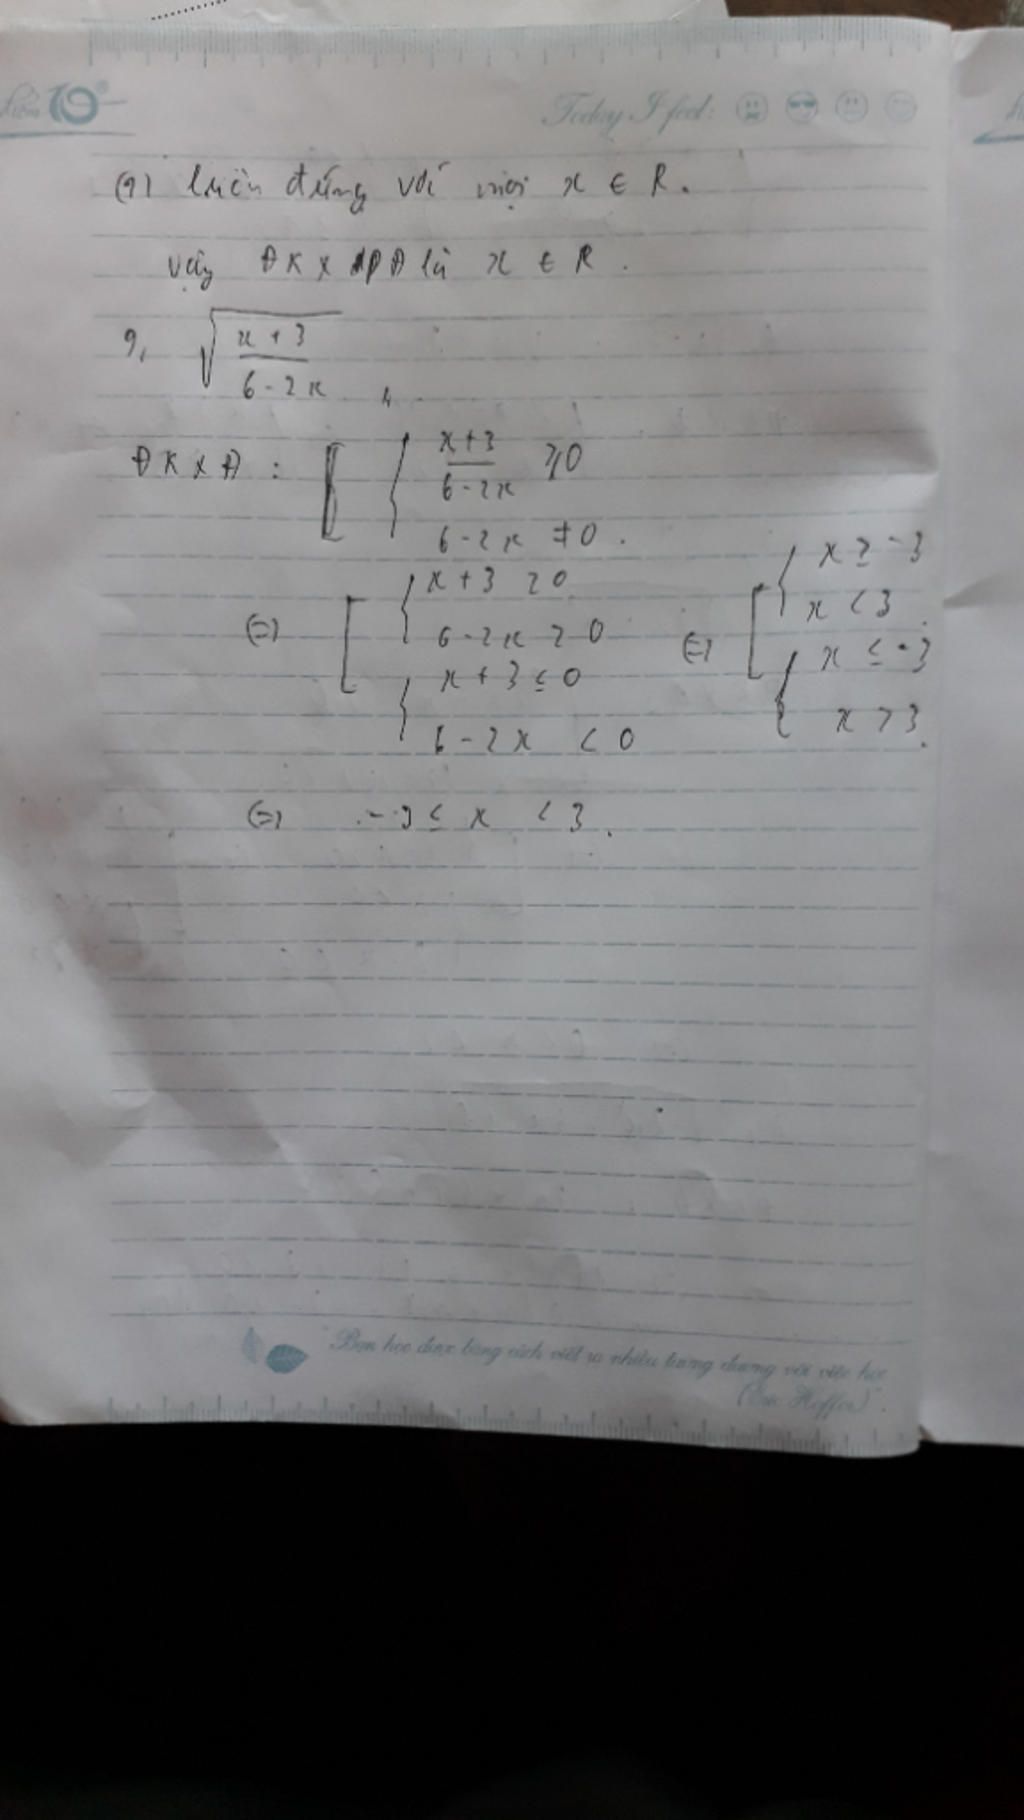 điểm 10
Today I feel:
(9) luôn đúng với mọi x ∈ R.
vậy ĐKXĐ là x ∈ R.
9, √((x+3)/(6-2x))
ĐKXĐ: { (x+3)/(6-2x) ≥ 0
6-2x ≠ 0.
(=) [ { x+3 ≥ 0
6-2x > 0
{ x+3 ≤ 0
6-2x < 0
(=) [ { x ≥ -3
x < 3.
{ x ≤ -3
x > 3.
(=) -3 ≤ x < 3.
Bạn học được bằng cách viết ra nhiều tương đương với việc học
(Eric Hoffer).